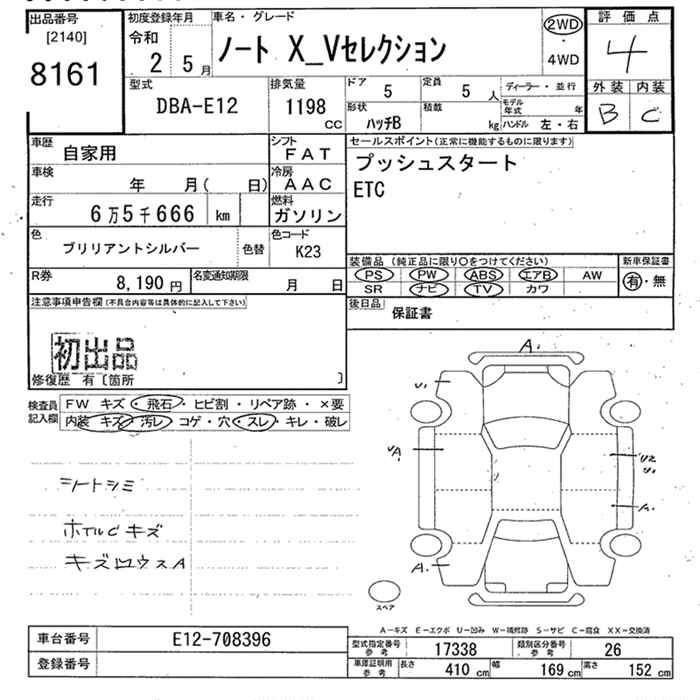 出品番号
[2140]
8161
初度登録年月
令和
2 5月
車名・グレード
ノート X_Vセレクション
2WD
・
4WD
評価点
4
型式
DBA-E12
排気量
1198
CC
ドア
5
定員
5 人
ディーラー・並行
形状
ハッチB
積載
kg
モデル
年式
年
ハンドル 左・右
外装 内装
B C
車歴
自家用
シフト
FAT
車検
年 月( 日)
冷房
AAC
走行
6万5千666 km
燃料
ガソリン
色
ブリリアントシルバー
色替
色コード
K23
R券
8,190円
名変通知期限
月 日
セールスポイント(正常に機能するものに限ります)
プッシュスタート
ETC
装備品 (純正品に限り○をつけてください)
PS PW ABS エアB AW
SR ナビ TV カワ
新車保証書
有・無
後日品
保証書
注意事項申告欄(不具合内容等は具体的に記入して下さい)
初出品
修復歴 有〔箇所 〕
検査員
記入欄
FW キズ・飛石・ヒビ割・リペア跡・×要
内装 キズ・汚レ コゲ・穴・スレ・キレ・破レ
シートシミ
ホイルCキズ
A.
U1
UA
U2
A.
A.
スペア
A-キズ E-エクボ U-凹み W-補修跡 S-サビ C-腐食 XX-交換済
車台番号
E12-708396
登録番号
型式指定番号
参考
17338
類別区分番号
参考
26
車庫証明用
参考
長さ
410 cm
幅
169 cm
高さ
152 cm